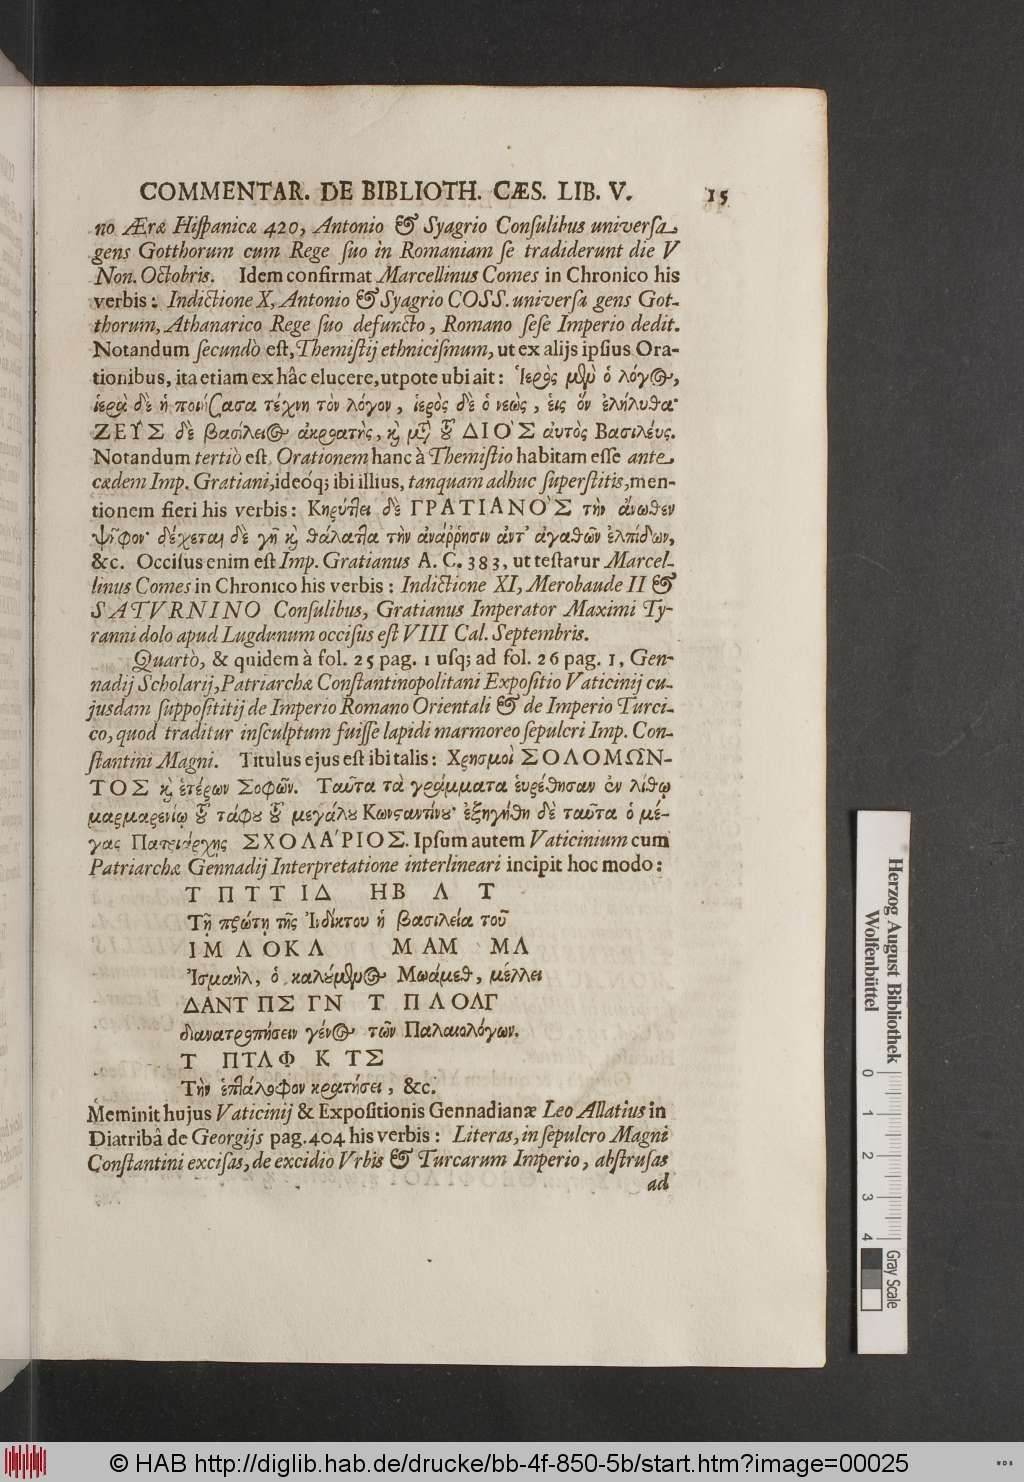 COMMENTAR. DE BIBLIOTH. CÆS. LIB. V. 15
no Æræ Hiſpanicæ 420, Antonio & Syagrio Conſulibus univerſa
gens Gotthorum cum Rege ſuo in Romaniam ſe tradiderunt die V
Non. Octobris. Idem confirmat Marcellinus Comes in Chronico his
verbis: Indictione X, Antonio & Syagrio COSS. univerſa gens Got-
thorum, Athanarico Rege ſuo defuncto, Romano ſeſe Imperio dedit.
Notandum ſecundò eſt, Themiſtij ethniciſmum, ut ex alijs ipſius Ora-
tionibus, ita etiam ex hâc elucere, utpote ubi ait: Ἱερὸς μὲν ὁ λόγος,
ἱερὰ δὲ ἡ ποιήσασα τέχνη τὸν λόγον, ἱερὸς δὲ ὁ νεὼς, εἰς ὃν ἐλήλυθα·
ΖΕΥ̓Σ δὲ βασίλειος ἀκροατὴς, καὶ μετὰ τοῦ ΔΙῸΣ αὐτὸς Βασιλέυς.
Notandum tertiò eſt, Orationem hanc à Themiſtio habitam eſſe ante
cædem Imp. Gratiani, ideóq; ibi illius, tanquam adhuc ſuperſtitis, men-
tionem fieri his verbis: Κηρύττει δὲ ΓΡΑΤΙΑΝῸΣ τὴν ἄνωθεν
ψῆφον· δέχεται δὲ γῆ καὶ θάλαττα τὴν ἀνάῤῥησιν ἀντ᾽ ἀγαθῶν ἐλπίδων,
&c. Occiſus enim eſt Imp. Gratianus A. C. 383, ut teſtatur Marcel-
linus Comes in Chronico his verbis: Indictione XI, Merobaude II &
SATVRNINO Conſulibus, Gratianus Imperator Maximi Ty-
ranni dolo apud Lugdunum occiſus eſt VIII Cal. Septembris.
Quartò, & quidem à fol. 25 pag. 1 uſq; ad fol. 26 pag. 1, Gen-
nadij Scholarij, Patriarchæ Conſtantinopolitani Expoſitio Vaticinij cu-
jusdam ſuppoſititij de Imperio Romano Orientali & de Imperio Turci-
co, quod traditur inſculptum fuiſſe lapidi marmoreo ſepulcri Imp. Con-
ſtantini Magni. Titulus ejus eſt ibi talis: Χρησμοὶ ΣΟΛΟΜΩ͂Ν-
ΤΟΣ καὶ ἑτέρων Σοφῶν. Ταῦτα τὰ γράμματα ἑυρέθησαν ἐν λίθῳ
μαρμαρενίῳ τοῦ τάφου τοῦ μεγάλου Κωνσταντίνου· ἐξηγήθη δὲ ταῦτα ὁ μέ-
γας Πατριάρχης ΣΧΟΛΑ'ΡΙΟΣ. Ipſum autem Vaticinium cum
Patriarchæ Gennadij Interpretatione interlineari incipit hoc modo:
Τ ΠΤΤ ΙΔ ΗΒ Λ Τ
Τῇ πρώτῃ τῆς Ἰνδίκτου ἡ βασιλεία τοῦ
ΙΜ Λ ΟΚΛ ΜΑΜ ΜΛ
Ἰσμαὴλ, ὁ καλούμενος Μωάμεθ, μέλλει
ΔΑΝΤ ΠΣ ΓΝ Τ ΠΛΟΛΓ
διανατροπήσειν γένος τῶν Παλαιολόγων.
Τ ΠΤΛΦ Κ ΤΣ
Τὴν ἑπτάλοφον κρατήσει, &c.
Meminit hujus Vaticinij & Expoſitionis Gennadianæ Leo Allatius in
Diatribâ de Georgijs pag. 404 his verbis: Literas, in ſepulcro Magni
Conſtantini exciſas, de excidio Vrbis & Turcarum Imperio, abſtruſas
ad
Herzog August Bibliothek
Wolfenbüttel
0 1 2 3 4
Gray Scale
© HAB http://diglib.hab.de/drucke/bb-4f-850-5b/start.htm?image=00025